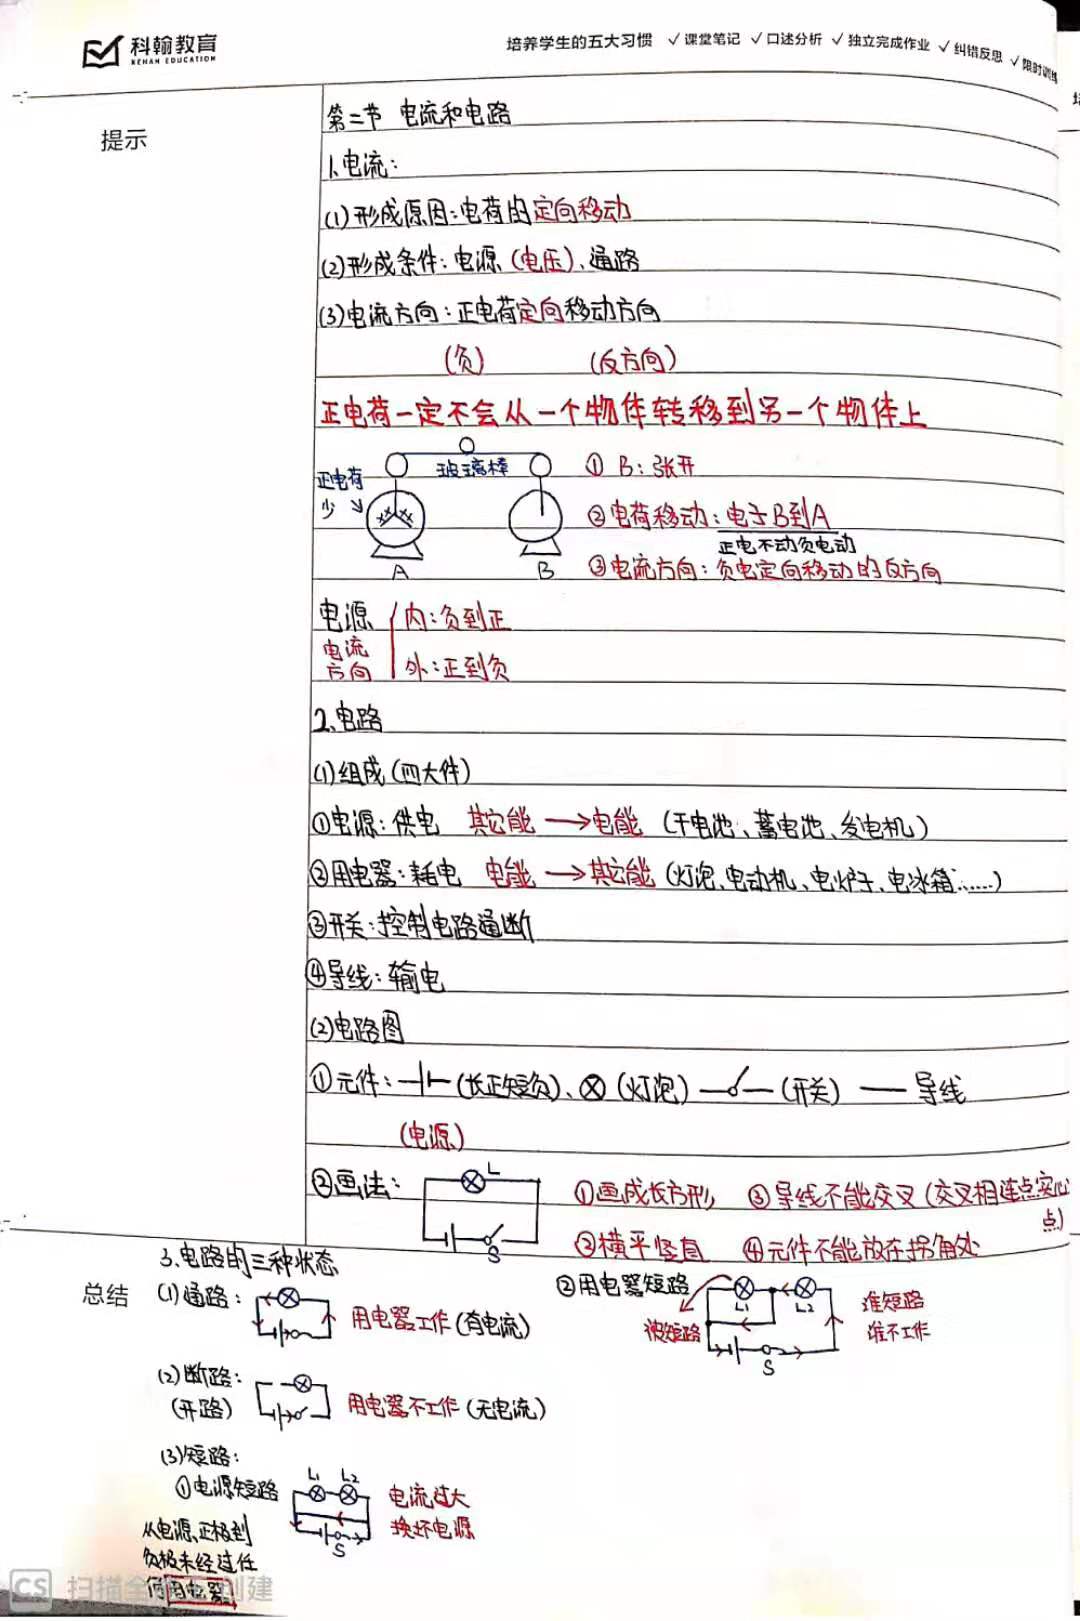 科翰教育
KEHAN EDUCATION
培养学生的五大习惯 √课堂笔记 √口述分析 √独立完成作业 √纠错反思 √限时训练
提示
第二节 电流和电路
1.电流:
(1)形成原因:电荷的定向移动
(2)形成条件:电源(电压)、通路
(3)电流方向:正电荷定向移动方向
(负) (反方向)
正电荷一定不会从一个物体转移到另一个物体上
正电荷
少
玻璃棒
A
B
① B:张开
②电荷移动:电子B到A
正电不动负电动
③电流方向:负电定向移动的反方向
电源 内:负到正
电流
方向 外:正到负
2.电路
(1)组成(四大件)
①电源:供电 其它能→电能 (干电池、蓄电池、发电机)
②用电器:耗电 电能→其它能(灯泡、电动机、电炉子、电冰箱……)
③开关:控制电路通断
④导线:输电
(2)电路图
①元件: (长正短负)、 (灯泡) (开关) 导线
(电源)
②画法: L S
①画成长方形 ③导线不能交叉(交叉相连点实心点)
②横平竖直 ④元件不能放在拐角处
总结
3.电路的三种状态
(1)通路: 用电器工作(有电流)
(2)断路:
(开路) 用电器不工作(无电流)
(3)短路:
①电源短路 L1 L2 S
电流过大
换坏电源
从电源正极到
负极未经过任
何用电器!
②用电器短路
被短路 L1 L2 S
谁短路
谁不工作
CS 扫描全 创建